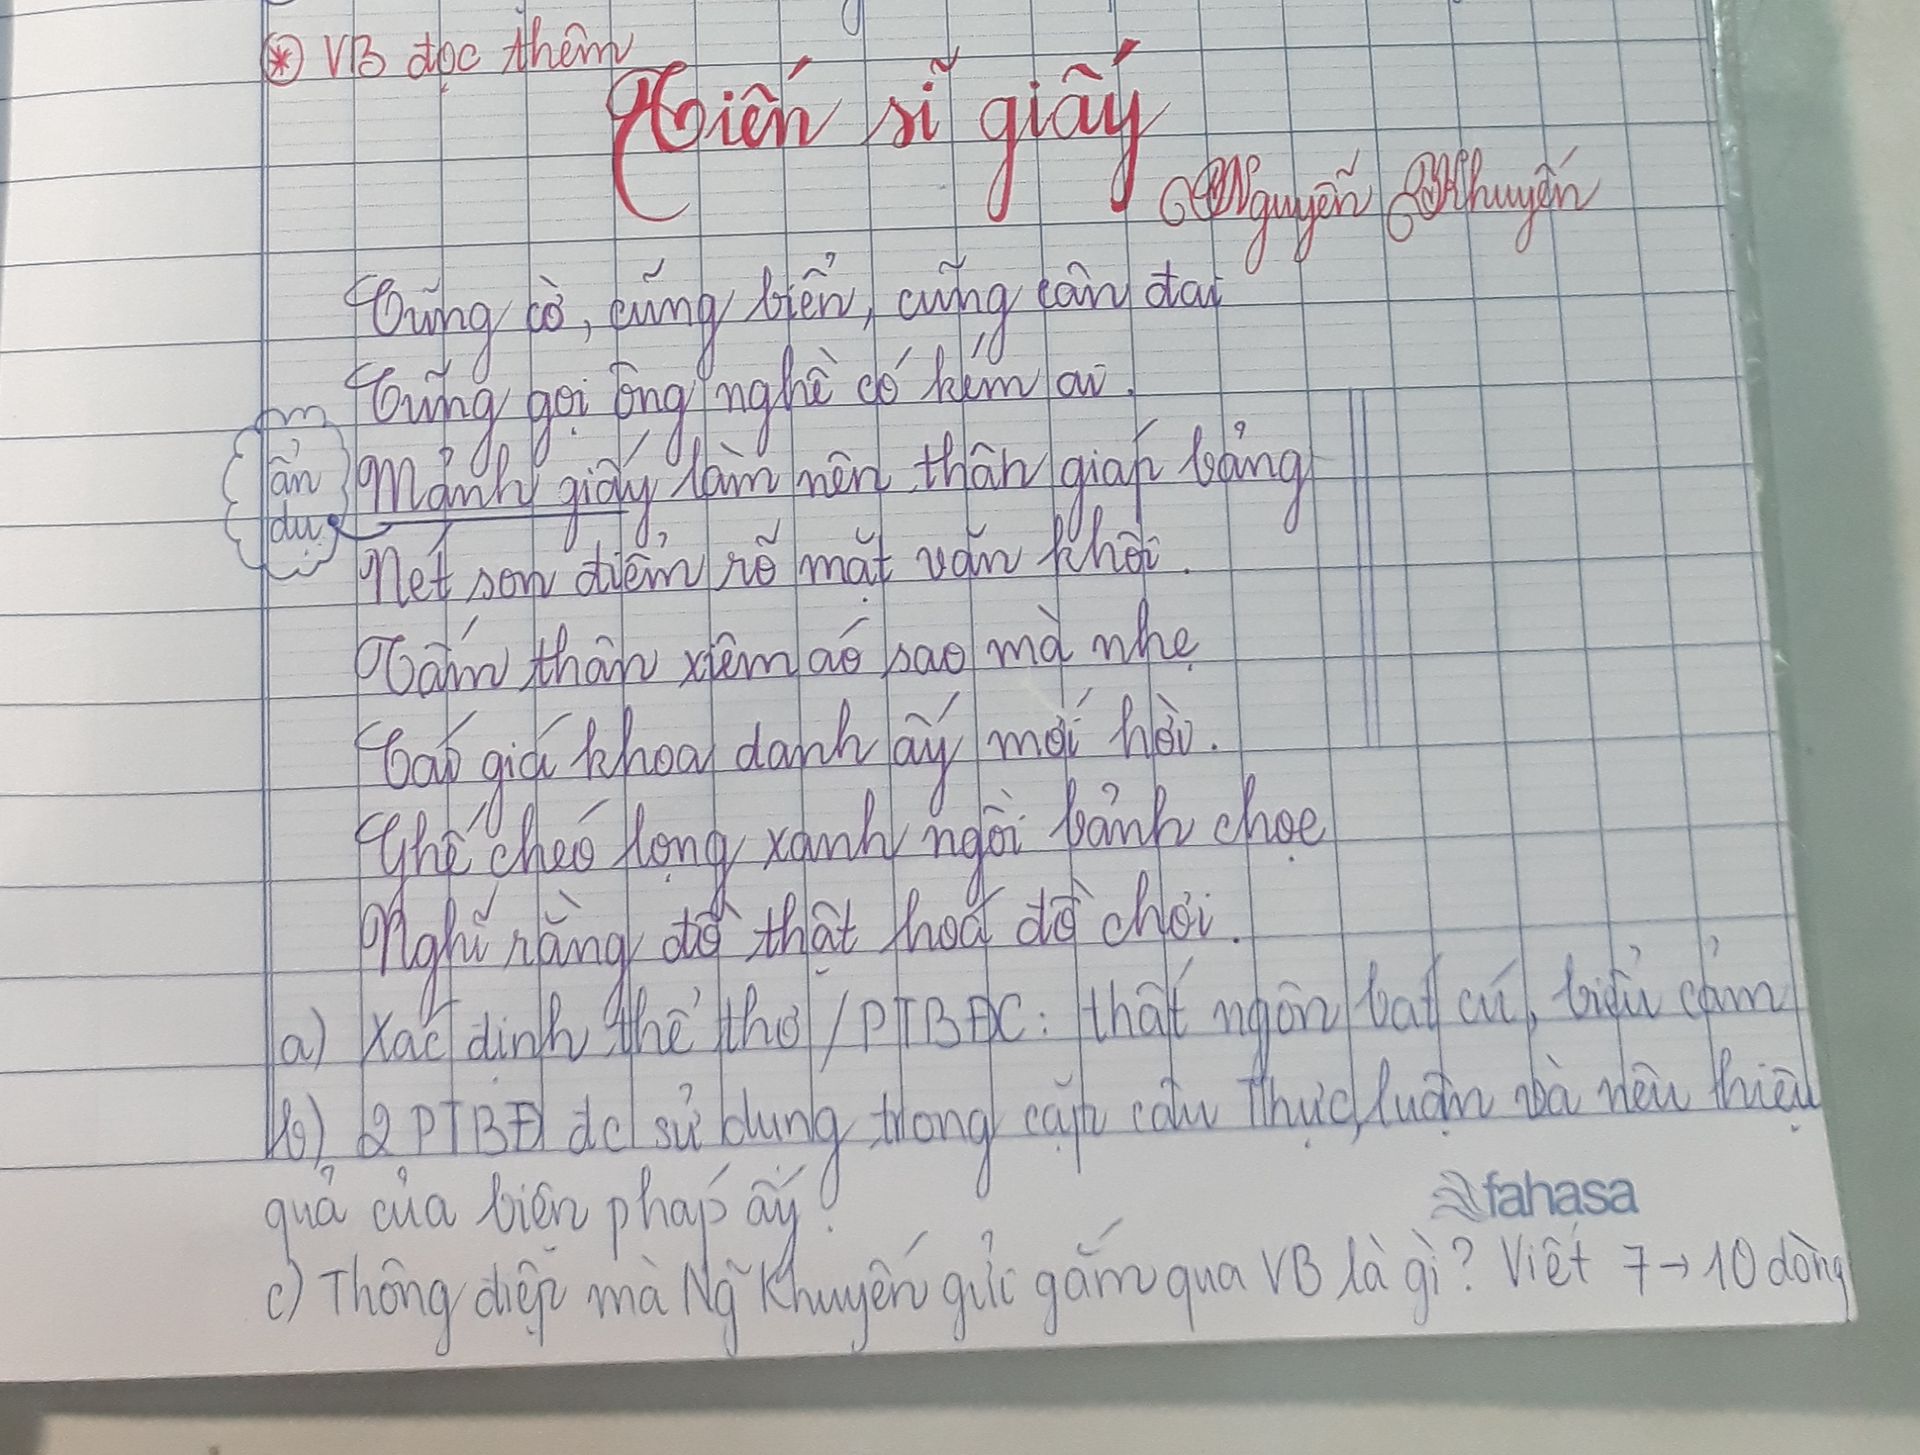 * VB đọc thêm
Tiến sĩ giấy
Nguyễn Khuyến
Cũng cờ, cũng biển, cũng cân đai
Cũng gọi ông nghè có kém ai.
ẩn dụ
Mảnh giấy làm nên thân giáp bảng
Nét son điểm rõ mặt văn khôi.
Tấm thân xiêm áo sao mà nhẹ
Cái giá khoa danh ấy mới hời.
Ghế chéo lọng xanh ngồi bảnh chọe
Nghĩ rằng đồ thật hoá đồ chơi.
a) Xác định thể thơ / PTBĐC: thất ngôn bát cú, biểu cảm
b) 2 PTBĐ đc sử dụng trong cặp câu Thực, luận và nêu hiệu
quả của biện pháp ấy?
fahasa
c) Thông điệp mà Ng~ Khuyến gửi gắm qua VB là gì? Viết 7 → 10 dòng